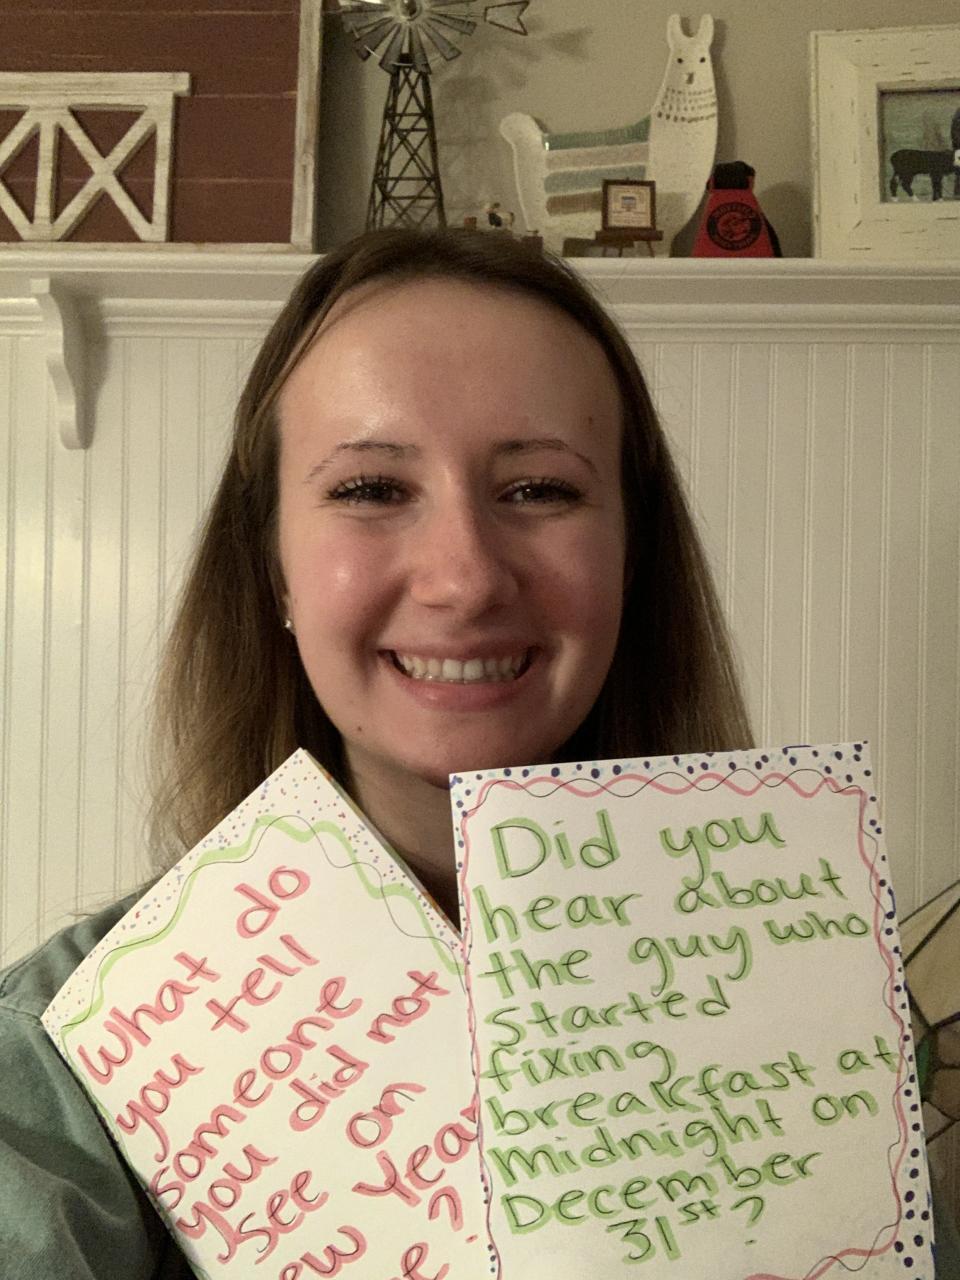 What do
you tell
someone
you did not
see on
ew Year
e?
Did you
hear about
the guy who
started
fixing
breakfast at
midnight on
December
31st?